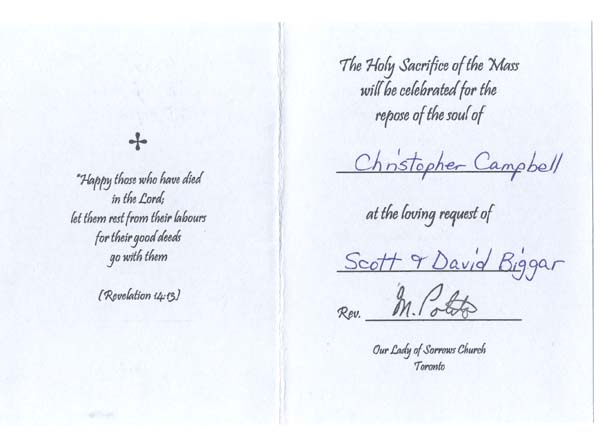 "Happy those who have died
in the Lord;
let them rest from their labours
for their good deeds
go with them
(Revelation 14:13)
The Holy Sacrifice of the Mass
will be celebrated for the
repose of the soul of
Christopher Campbell
at the loving request of
Scott & David Biggar
Rev.
Our Lady of Sorrows Church
Toronto